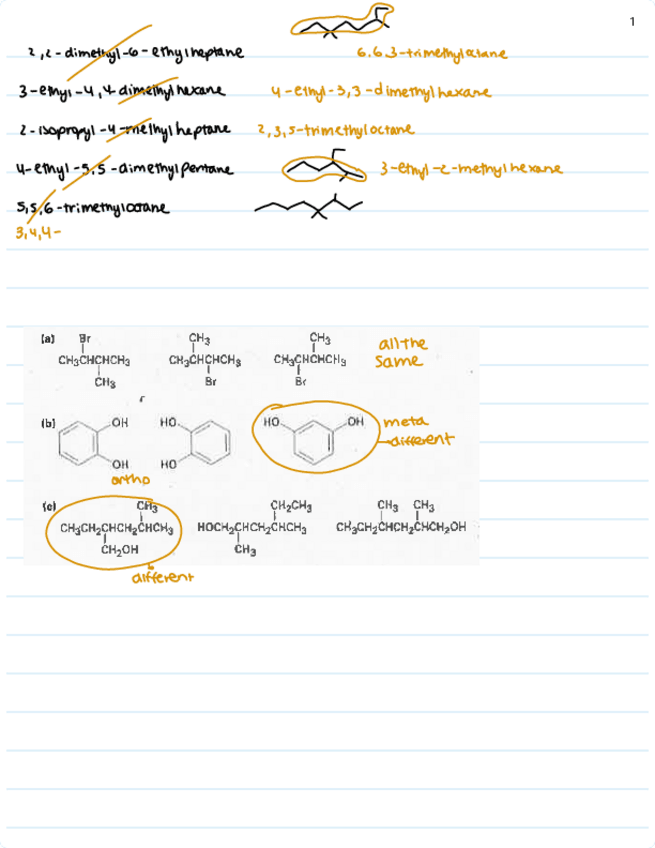 1
2,2-dimethyl-6-ethylheptane 6,6,3-trimethyloctane
3-ethyl-4,4-dimethylhexane 4-ethyl-3,3-dimethylhexane
2-isopropyl-4-methylheptane 2,3,5-trimethyloctane
4-ethyl-5,5-dimethylpentane 3-ethyl-2-methylhexane
5,5,6-trimethyloctane
3,4,4-
(a) Br CH₃ CH₃ all the
CH₃CHCHCH₃ CH₃CHCHCH₃ CH₃CHCHCH₃ same
CH₃ Br Br
(b) OH HO HO OH meta
different
OH HO
ortho
(c) CH₃ CH₂CH₃ CH₃ CH₃
CH₃CH₂CHCH₂CHCH₃ HOCH₂CHCH₂CHCH₃ CH₃CH₂CHCH₂CHCH₂OH
CH₂OH CH₃
different